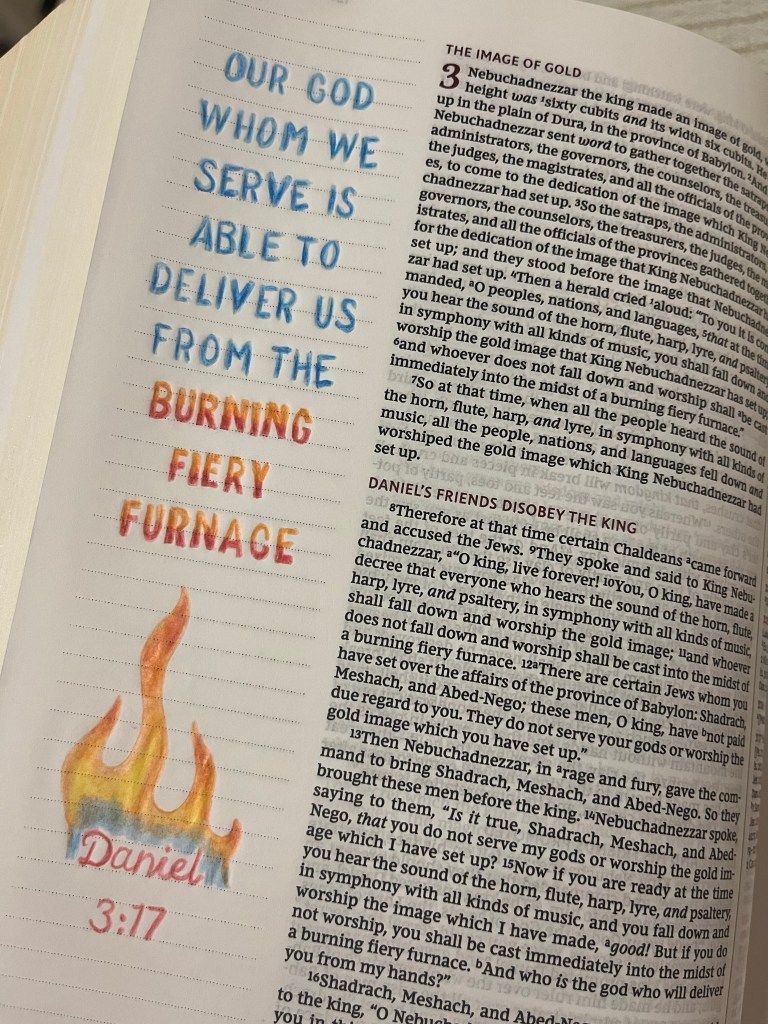 OUR GOD
WHOM WE
SERVE IS
ABLE TO
DELIVER US
FROM THE
BURNING
FIERY
FURNACE
Daniel
3:17
THE IMAGE OF GOLD
3 Nebuchadnezzar the king made an image of gold,
height was ¹sixty cubits and its width six cubits. He
up in the plain of Dura, in the province of Babylon. ²And
Nebuchadnezzar sent word to gather together the satraps
administrators, the governors, the counselors, the treas
the judges, the magistrates, and all the officials of the prov
es, to come to the dedication of the image which King Ne
chadnezzar had set up. ³So the satraps, the administrators,
governors, the counselors, the treasurers, the judges, the m
istrates, and all the officials of the provinces gathered toget
for the dedication of the image that King Nebuchadnezzar h
set up; and they stood before the image that Nebuchadnez
zar had set up. ⁴Then a herald cried ¹aloud: "To you it is com
manded, ᵃO peoples, nations, and languages, ⁵that at the time
you hear the sound of the horn, flute, harp, lyre, and psaltery,
in symphony with all kinds of music, you shall fall down and
worship the gold image that King Nebuchadnezzar has set up;
⁶and whoever does not fall down and worship shall ᵃbe cast
immediately into the midst of a burning fiery furnace."
⁷So at that time, when all the people heard the sound of
the horn, flute, harp, and lyre, in symphony with all kinds of
music, all the people, nations, and languages fell down and
worshiped the gold image which King Nebuchadnezzar had
set up.
DANIEL'S FRIENDS DISOBEY THE KING
⁸Therefore at that time certain Chaldeans ᵃcame forward
and accused the Jews. ⁹They spoke and said to King Nebu-
chadnezzar, ᵃ"O king, live forever! ¹⁰You, O king, have made a
decree that everyone who hears the sound of the horn, flute,
harp, lyre, and psaltery, in symphony with all kinds of music,
shall fall down and worship the gold image; ¹¹and whoever
does not fall down and worship shall be cast into the midst of
a burning fiery furnace. ¹²ᵃThere are certain Jews whom you
have set over the affairs of the province of Babylon: Shadrach,
Meshach, and Abed-Nego; these men, O king, have ᵇnot paid
due regard to you. They do not serve your gods or worship the
gold image which you have set up."
¹³Then Nebuchadnezzar, in ᵃrage and fury, gave the com-
mand to bring Shadrach, Meshach, and Abed-Nego. So they
brought these men before the king. ¹⁴Nebuchadnezzar spoke,
saying to them, "Is it true, Shadrach, Meshach, and Abed-
Nego, that you do not serve my gods or worship the gold im-
age which I have set up? ¹⁵Now if you are ready at the time
you hear the sound of the horn, flute, harp, lyre, and psaltery,
in symphony with all kinds of music, and you fall down and
worship the image which I have made, ᵃgood! But if you do
not worship, you shall be cast immediately into the midst of
a burning fiery furnace. ᵇAnd who is the god who will deliver
you from my hands?"
¹⁶Shadrach, Meshach, and Abed-Nego
to the king, "O Nebuch
you in thi